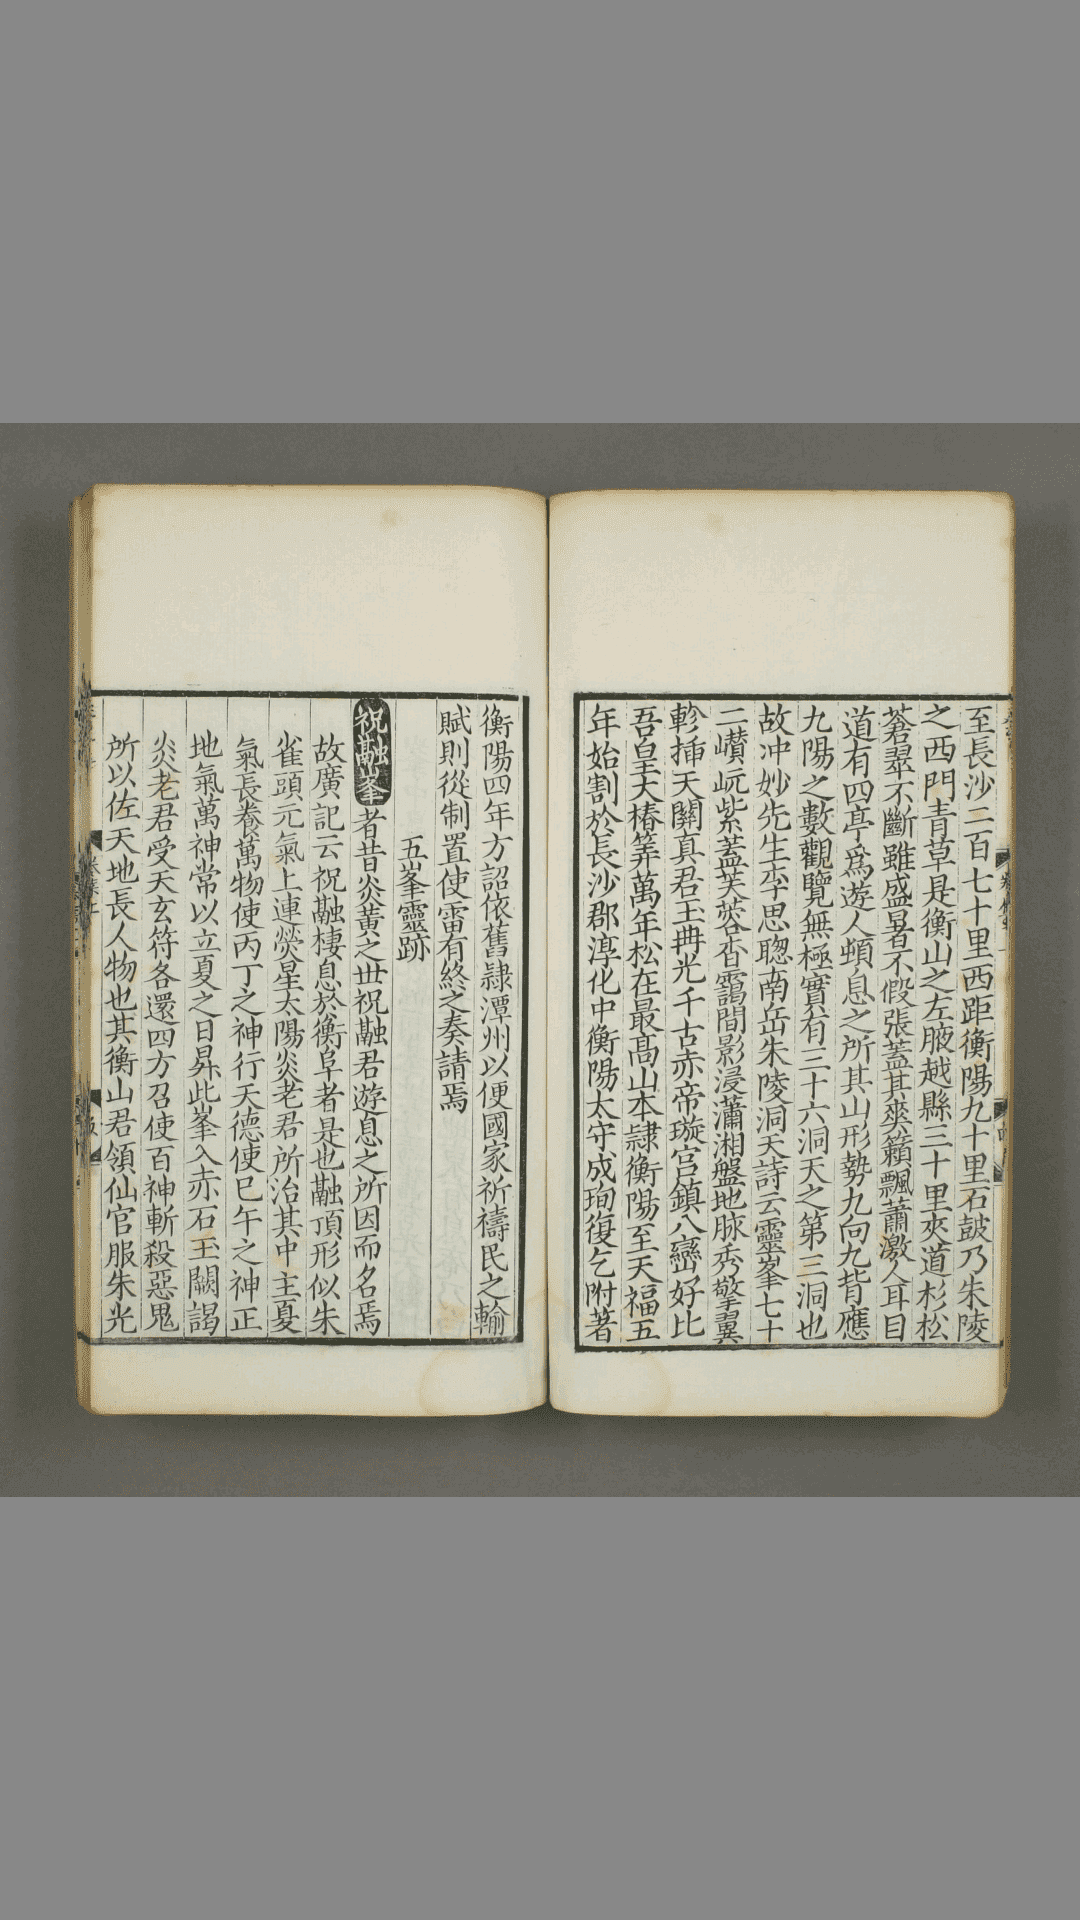 至長沙二百七十里西距衡陽九十里石鼓乃朱陵
之西門青草是衡山之左腋越縣三十里夾道杉松
蒼翠不斷雖盛暑不假張蓋其爽籟飄蕭激人耳目
道有四亭爲遊人頓息之所其山形勢九向九背應
九陽之數觀覽無極實有三十六洞天之第三洞也
故冲妙先生李思聰南岳朱陵洞天詩云靈峯七十
二巑岏紫蓋芙蓉杳靄間影浸瀟湘盤地脉秀擎翼
軫揷天關真君玉冊光千古赤帝璇宫鎮八蠻好比
吾皇大椿筭萬年松在最高山本隷衡陽至天福五
年始割於長沙郡淳化中衡陽太守成珣復乞附著
衡陽四年方詔依舊隷潭州以便國家祈禱民之輸
賦則從制置使雷有終之奏請焉
五峯靈跡
祝融峯者昔炎黄之世祝融君遊息之所因而名焉
故廣記云祝融棲息於衡阜者是也融頂形似朱
雀頭元氣上連熒星太陽炎老君所治其中主夏
氣長養萬物使丙丁之神行天德使巳午之神正
地氣萬神常以立夏之日昇此峯入赤石玉闕謁
炎老君受天玄符各還四方召使百神斬殺惡鬼
所以佐天地長人物也其衡山君領仙官服朱光